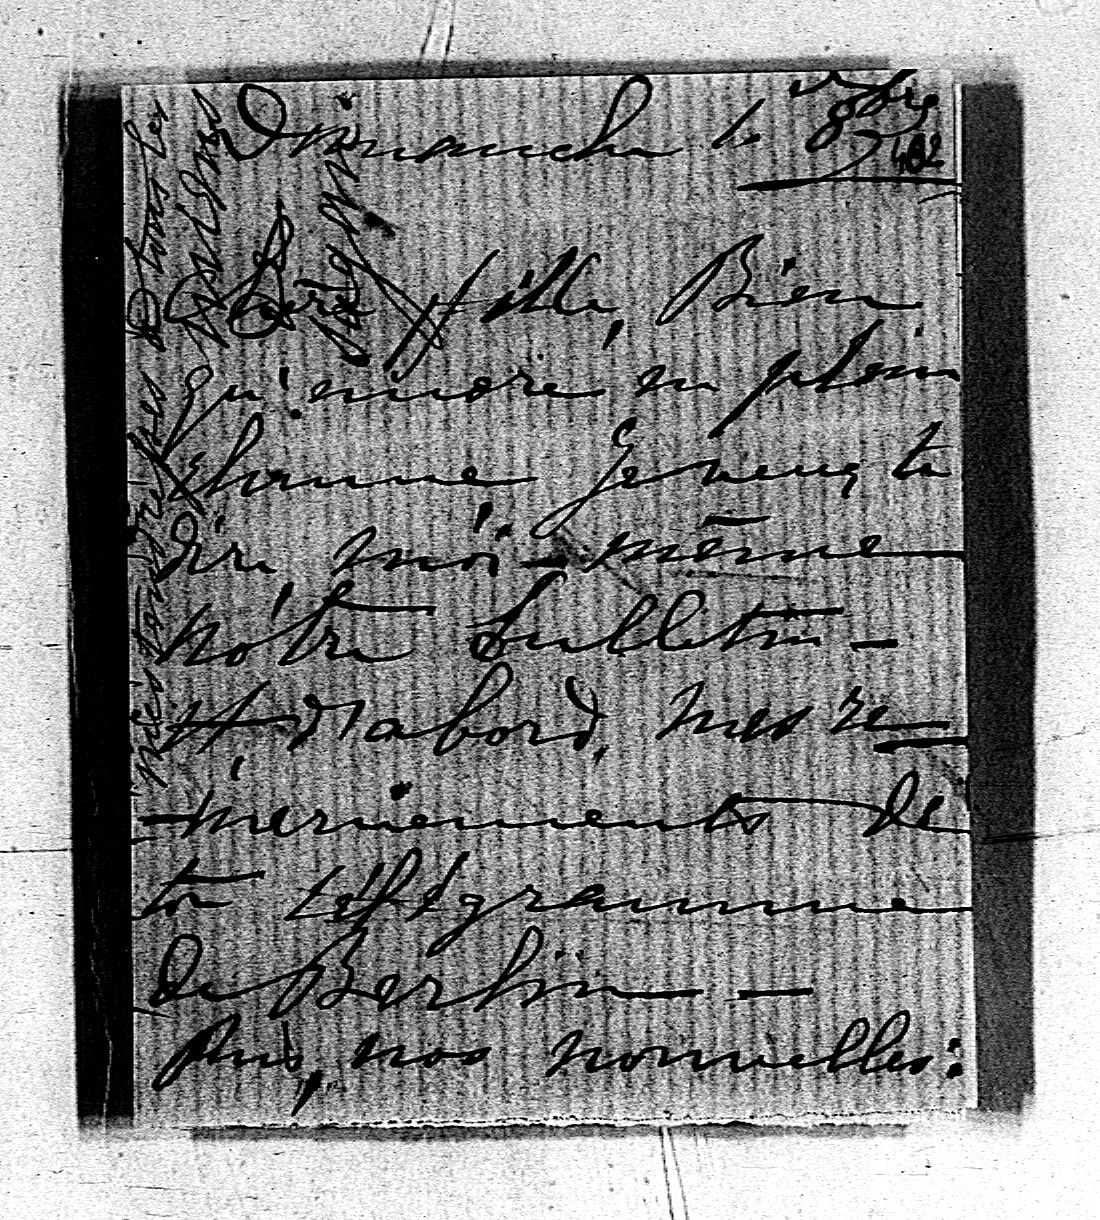 Dimanche le 8bre
482
Chère fille, Bien
qu'encore en plein
rhume je veux te
dire moi-même
nôtre bulletin —
Et d'abord, mes re-
-merciements de
ton télégramme
de Berlin —
Puis, nos nouvelles:
mes tendresses à tous les